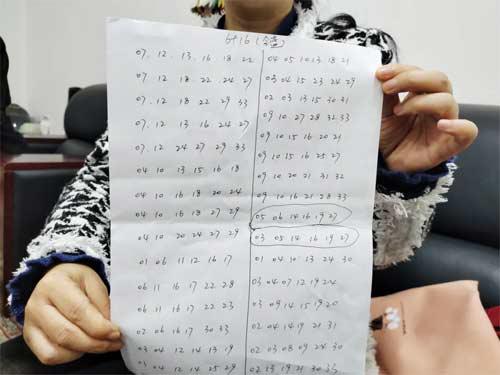 6+16 (全蓝)
07. 12. 13. 16 18 22
07. 12 18 22 24 27
07. 12 18 22 29 33
07. 12 13 16 24 27
07. 12 24 27 29 33
04 10 13 15 16 18
04 10 16 18 20 24
04 10 16 18 27 29
04 10 20 24 27 29
01 06 11 12 16 17
06 11 16 17 22 28
06 11 16 17 22 23
02 06 16 17 30 33
03 04 12 14 13 19
04 12 14 25 29
04 05 10 13 18 21
03 04 15 23 24 29
02 03 13 15 30 31
09 10 27 28 32 33
09 10 15 16 20 21
09 10 15 16 25 27
09 10 20 21 31 32
09 10 16 21 28 33
05 06 14 16 19 27
03 05 14 16 19 27
01 04 10 13 24 30
03 04 07 12 19 24
03 09 14 15 19 20
02 04 14 19 21 31
02 03 08 09 24 30
02 13 19 21 30 33